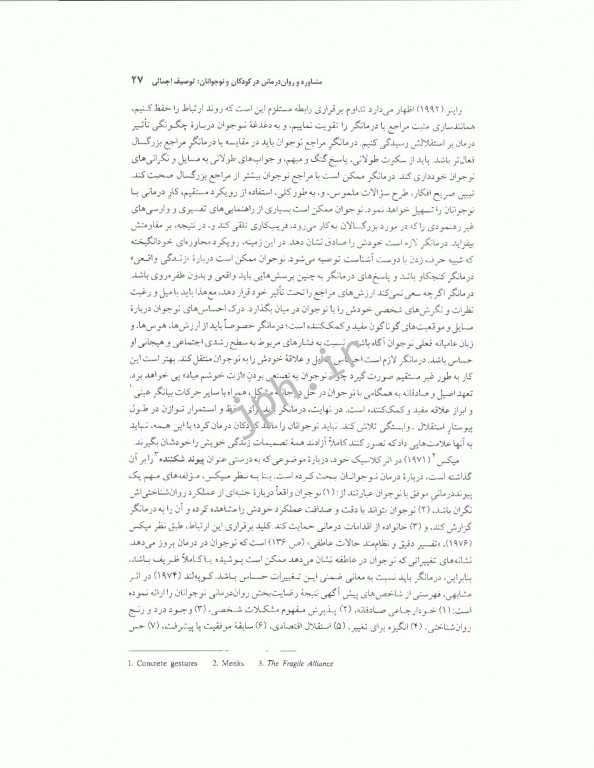 مشاوره و روان‌درمانی در کودکان و نوجوانان: توصیف اجمالی ۲۷
واینر (۱۹۹۲) اظهار می‌دارد تداوم برقراری رابطه مستلزم این است که روند ارتباط را حفظ کنیم،
همانندسازی مثبت مراجع با درمانگر را تقویت نماییم، و به دغدغهٔ نوجوان دربارهٔ چگونگی تأثیر
درمان بر استقلالش رسیدگی کنیم. درمانگرِ مراجع نوجوان باید در مقایسه با درمانگرِ مراجع بزرگسال
فعال‌تر باشد. باید از سکوت طولانی، پاسخ گنگ و مبهم، و جواب‌های طولانی به مسایل و نگرانی‌های
نوجوان خودداری کند. درمانگر ممکن است با مراجع نوجوان بیشتر از مراجع بزرگسال صحبت کند.
تبیین صریح افکار، طرح سؤالات ملموس، و، به طور کلی، استفاده از رویکرد مستقیم، کار درمانی با
نوجوانان را تسهیل خواهد نمود. نوجوان ممکن است بسیاری از راهنمایی‌های تفسیری و وارسی‌های
غیر رهنمودی را که در مورد بزرگسالان به‌کار می‌رود، فریب‌کاری تلقی کند و، در نتیجه، بر مقاومتش
بیفزاید. درمانگر لازم است خودش را صادق نشان دهد. در این زمینه، رویکرد محاوره‌ای خودانگیخته
که شبیه حرف زدن با دوست آشناست توصیه می‌شود. نوجوان ممکن است دربارهٔ «زندگی واقعی»
درمانگر کنجکاو باشد و پاسخ‌های درمانگر به چنین پرسش‌هایی باید واقعی و بدون طفره‌روی باشد.
درمانگر اگرچه سعی نمی‌کند ارزش‌های مراجع را تحت تأثیر خود قرار دهد، مع‌هذا باید با میل و رغبت
نظرات و نگرش‌های شخصی خودش را با نوجوان در میان بگذارد. درک احساس‌های نوجوان دربارهٔ
مسایل و موقعیت‌های گوناگون مفید و کمک‌کننده است؛ درمانگر خصوصاً باید از ارزش‌ها، هوس‌ها، و
زبان عامیانه فعلی نوجوان آگاه باشد و نسبت به فشارهای مربوط به سطح رشدی اجتماعی و هیجانی او
حساس باشد. درمانگر لازم است احساس و علاقهٔ خودش را به نوجوان منتقل کند. بهتر است این
کار به طور غیر مستقیم صورت گیرد چون نوجوان به تصنعی بودنِ «ازت خوشم میاد» پی خواهد برد.
تعهد اصیل و صادقانه به همگامی با نوجوان در حل مشکل، همراه با سایر حرکات بیانگر عینی۱
و ابراز علاقه مفید و کمک‌کننده است. در نهایت، درمانگر باید برای حفظ و استمرار توازن در طول
پیوستار استقلال ـ وابستگی تلاش کند. نباید نوجوانان را مانند کودکان درمان کرد؛ با این همه، نباید
به آنها علامت‌هایی داد که تصور کنند کاملاً آزادند همهٔ تصمیمات زندگی خویش را خودشان بگیرند.
میکس۲ (۱۹۷۱) در اثر کلاسیک خود، دربارهٔ موضوعی که به درستی عنوان پیوند شکننده۳ را بر آن
گذاشته است، دربارهٔ درمان نوجوانان بحث کرده است. بنا به نظر میکس، مؤلفه‌های مهم یک
پیوند درمانی موفق با نوجوان عبارتند از: (۱) نوجوان واقعاً دربارهٔ جنبه‌ای از عملکرد روان‌شناختی‌اش
نگران باشد، (۲) نوجوان بتواند با دقت و صداقت عملکرد خودش را مشاهده کرده و آن را به درمانگر
گزارش کند، و (۳) خانواده از اقدامات درمانی حمایت کند. کلید برقراری این ارتباط، طبق نظر میکس
(۱۹۷۶)، «تفسیر دقیق و نظام‌مند حالات عاطفی» (ص ۱۳۶) است که نوجوان در درمان بروز می‌دهد.
نشانه‌های تغییراتی که نوجوان در عاطفه نشان می‌دهد ممکن است پوشیده یا کاملاً ظریف باشد.
بنابراین، درمانگر باید نسبت به معانی ضمنی این تغییرات حساس باشد. کوپه‌لند (۱۹۷۴) در اثر
مشابهی، فهرستی از شاخص‌های پیش آگهی نتیجهٔ رضایت‌بخش روان‌درمانی نوجوانان را ارائه نموده
است: (۱) خودارجاعی صادقانه، (۲) پذیرش مفهوم مشکلات شخصی، (۳) وجود درد و رنج
روان‌شناختی، (۴) انگیزه برای تغییر، (۵) استقلال اقتصادی، (۶) سابقهٔ موفقیت یا پیشرفت، (۷) حس
1. Concrete gestures 2. Meeks 3. The Fragile Alliance
jph.ir